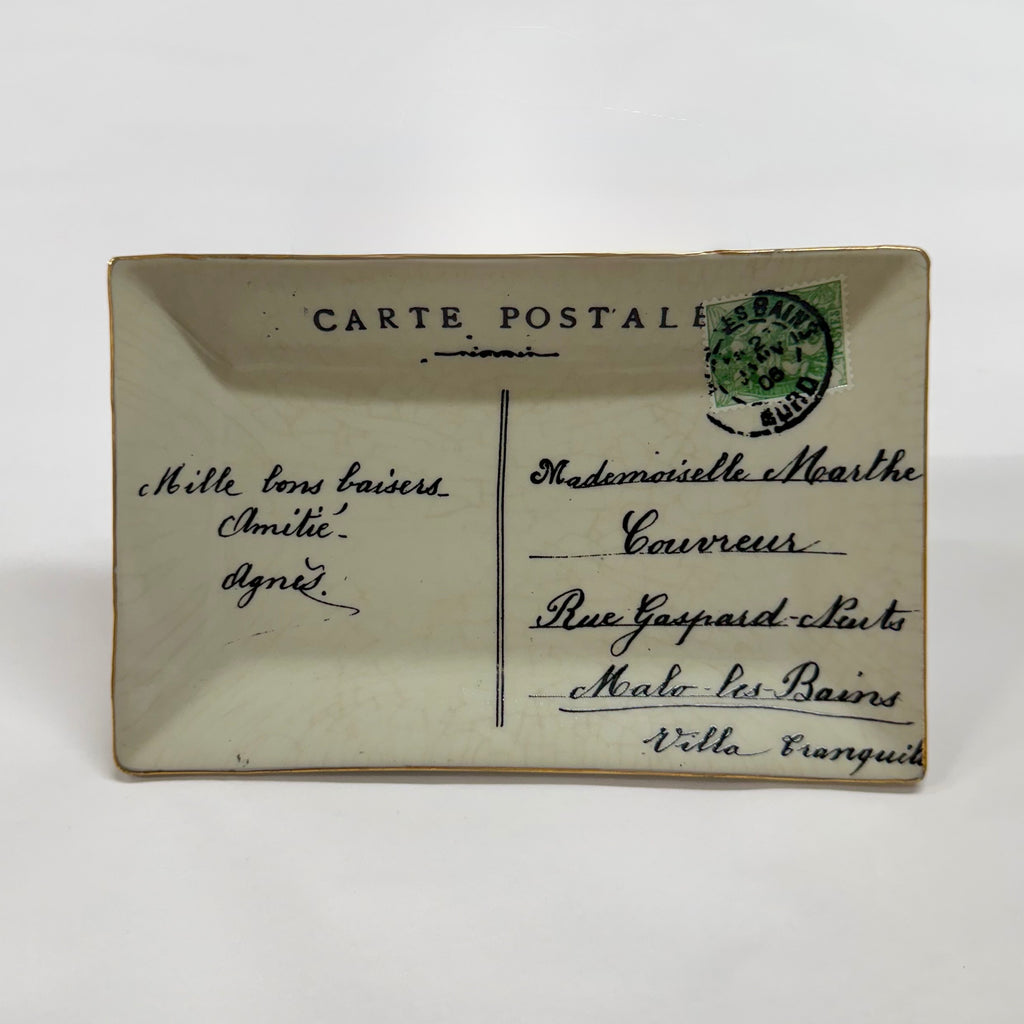 CARTE POSTALE
LES BAINS
2
JANV
06
NORD
Mille bons baisers
Amitié
Agnès.
Mademoiselle Marthe
Couvreur
Rue Gaspard-Neuts
Malo-les-Bains
Villa